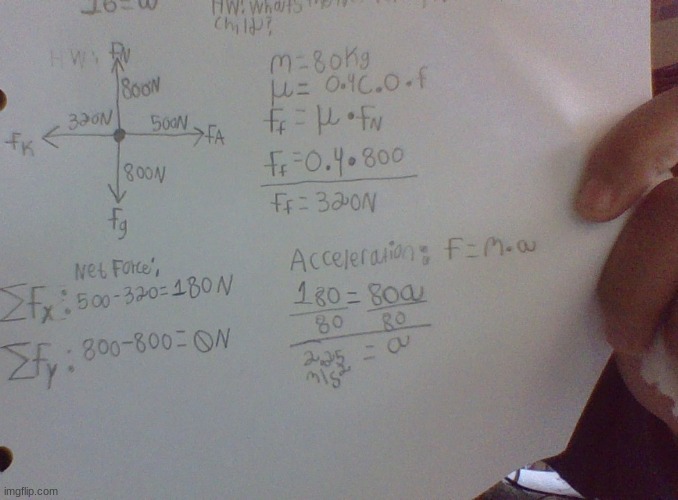 16=a
HW: whats the
child?
HW:
FN
800N
320N
500N
FK
FA
800N
Fg
m=80kg
μ= 0.4 C.O.F
Ff = μ • FN
Ff = 0.4 • 800
Ff = 320N
Net Force:
ΣFx: 500-320=180N
ΣFy: 800-800=0N
Acceleration: F=m•a
180 = 80a
80 80
2.25 m/s² = a
imgflip.com